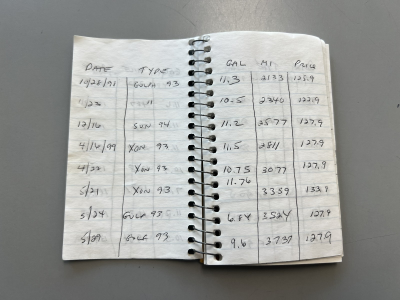 DATE TYPE GAL MI PRICE
10/28/91 GULF 93 11.3 2133 125.9
1/22 " 10.5 2340 122.9
12/16 SUN 94 11.2 2577 127.9
4/16/99 XON 93 11.5 2811 127.9
4/22 XON 93 10.75 3077 127.9
5/21 XON 93 11.76 3359 133.9
5/24 GULF 93 6.84 3524 127.9
5/29 GULF 93 9.6 3737 127.9